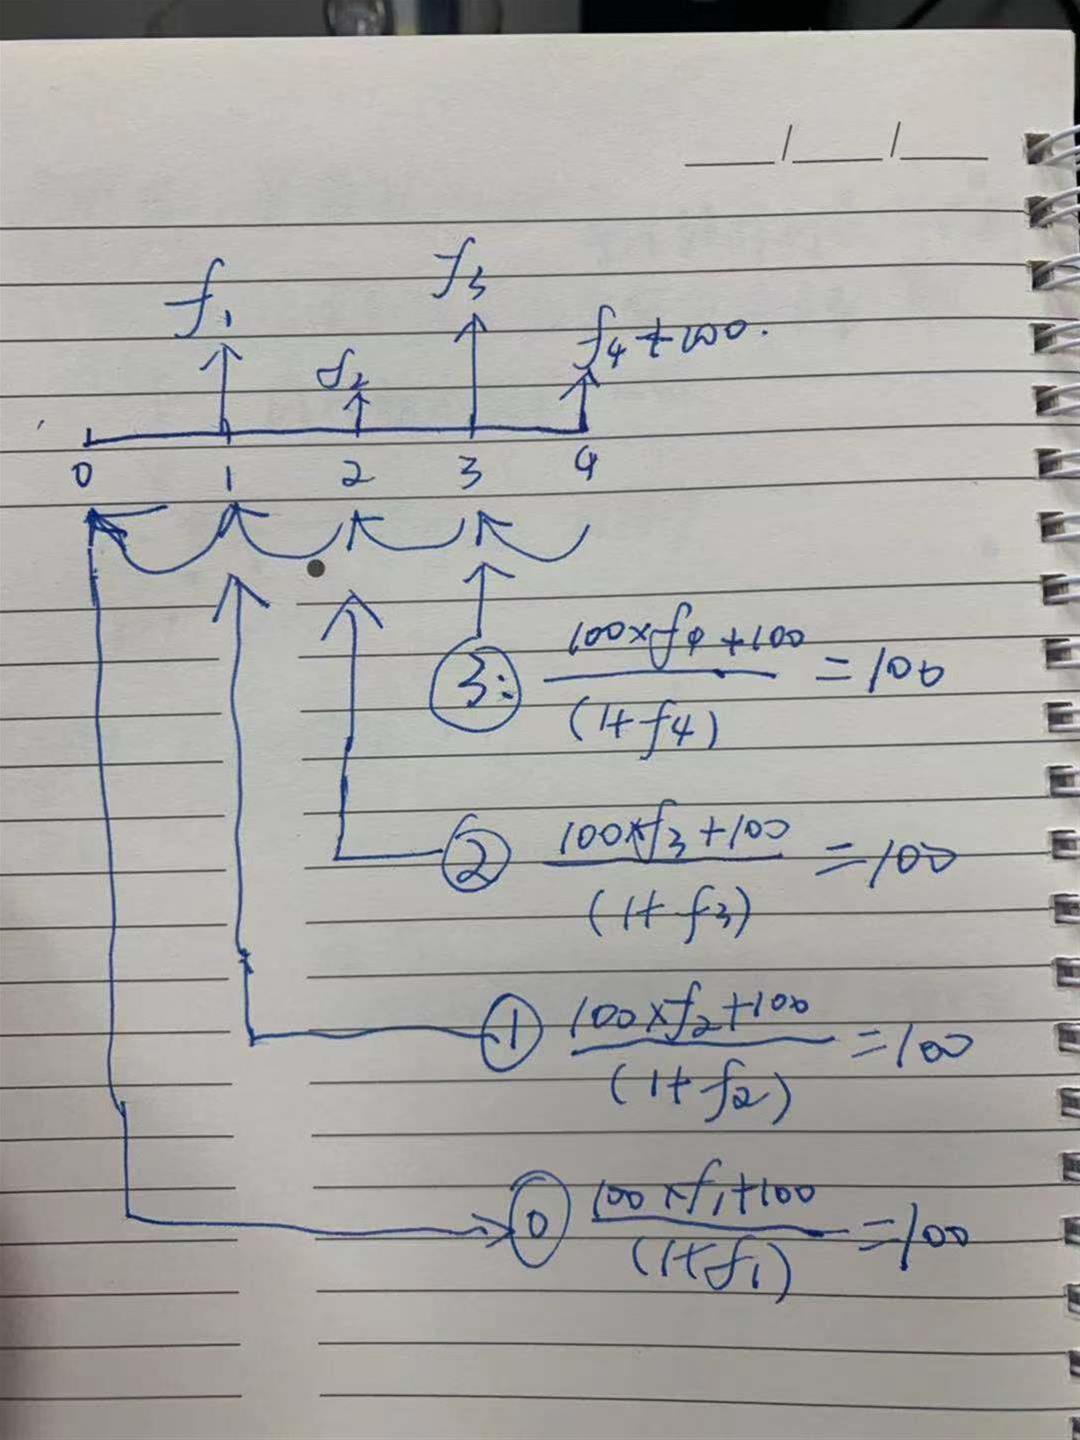 ___/___/___
f₁
f₃
f₂
f₄+100.
0 1 2 3 4
3: (100×f₄+100)/(1+f₄) = 100
2 (100×f₃+100)/(1+f₃) = 100
1 (100×f₂+100)/(1+f₂) = 100
0 (100×f₁+100)/(1+f₁) = 100